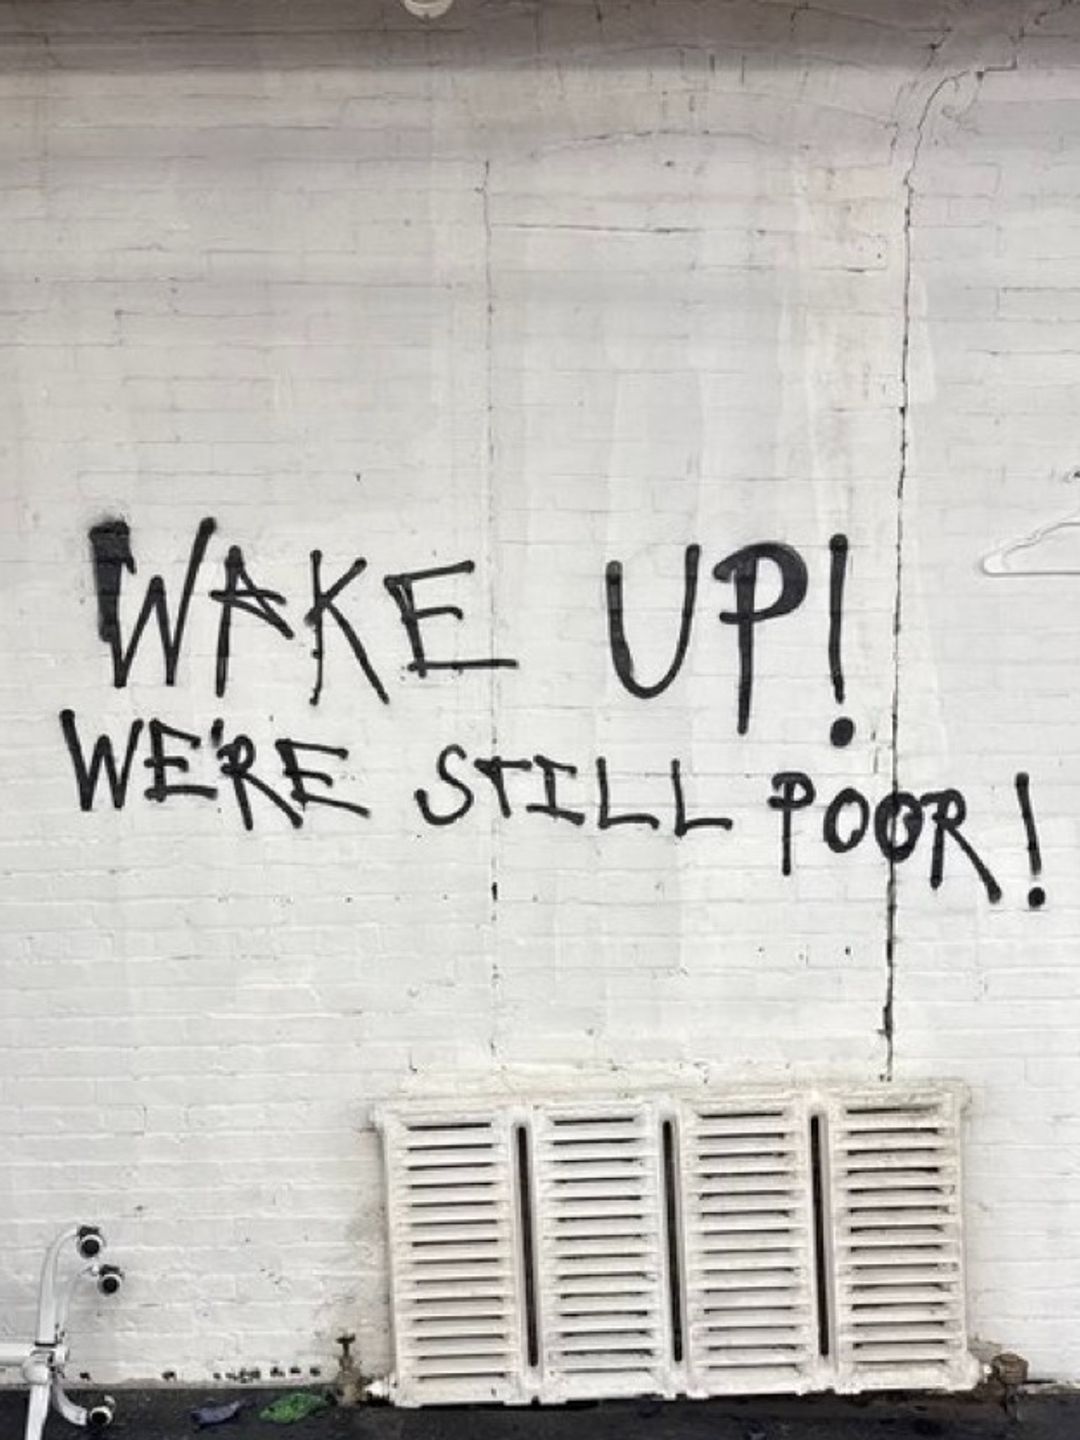 WAKE UP!
WE'RE STILL POOR!